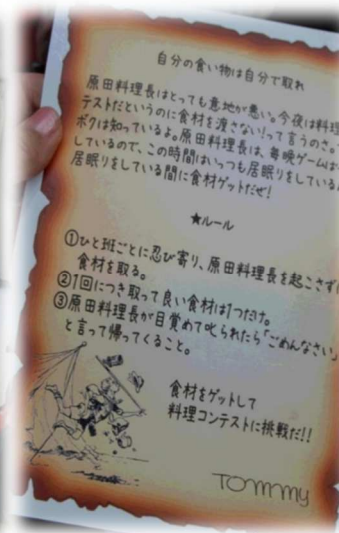 自分の食い物は自分で取れ
原田料理長はとっても意地が悪い。今夜は料理
テストだというのに食材を渡さない!って言うのさ。
ボクは知っているよ。原田料理長は、毎晩ゲームば
しているので、この時間はいっつも居眠りをしている
居眠りをしている間に食材ゲットだぜ!
★ルール
①ひと班ごとに忍び寄り、原田料理長を起こさず
食材を取る。
②1回につき取って良い食材は1つだけ。
③原田料理長が目覚めて叱られたら「ごめんなさい」
と言って帰ってくること。
食材をゲットして
料理コンテストに挑戦だ!!
Tommy